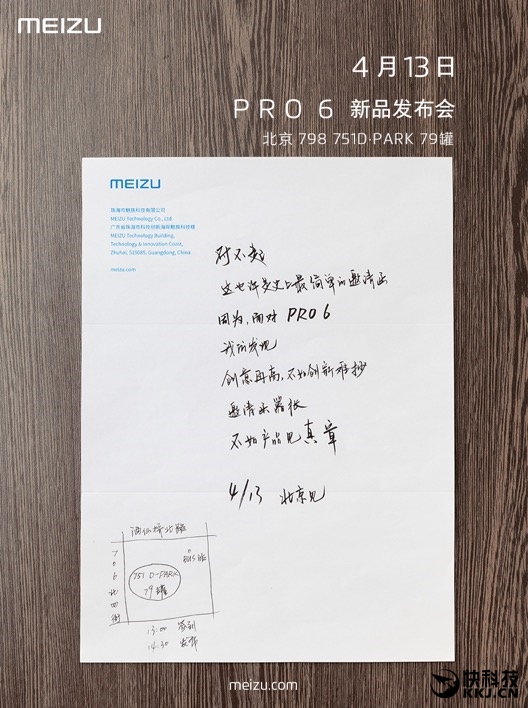 MEIZU
4月13日
PRO 6 新品发布会
北京 798 751D·PARK 79罐
MEIZU
珠海市魅族科技有限公司
MEIZU Technology Co., Ltd.
广东省珠海市科技创新海岸魅族科技楼
MEIZU Technology Building,
Technology & Innovation Coast,
Zhuhai, 519085, Guangdong, China
meizu.com
对不起
这也许是史上最简单的邀请函
因为，面对 PRO 6
我们发现
创意再高，不如创新难抄
邀请函嚣张
不如产品见真章
4/13 北京见
酒仙桥北路
706北四街
BUS站
751 D-PARK
79罐
13:00 签到
14:30 发布
meizu.com
快科技
KKJ.CN